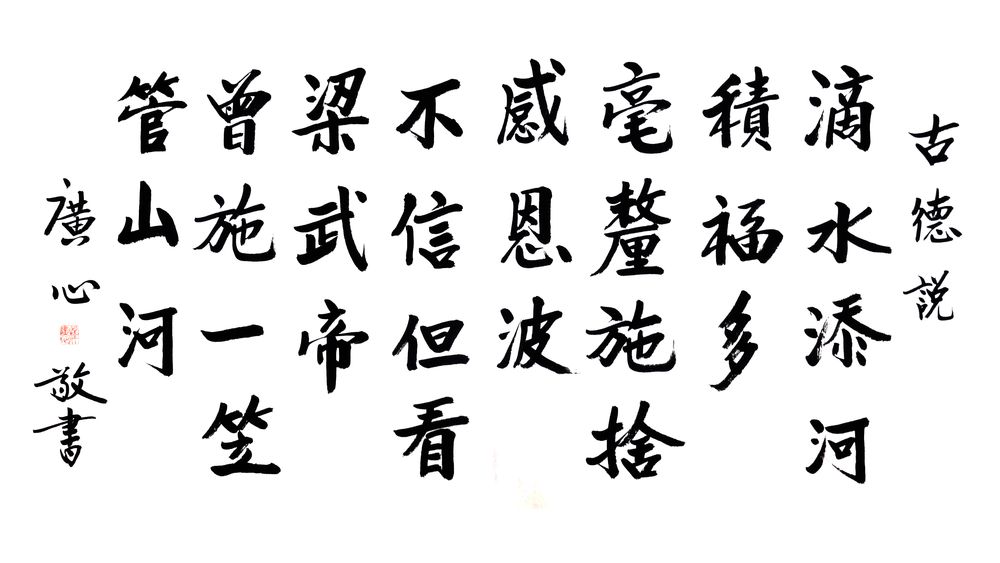 古德説
滴水添河
積福多
毫釐施捨
感恩波
不信但看
梁武帝
曾施一笠
管山河
廣心
敬書